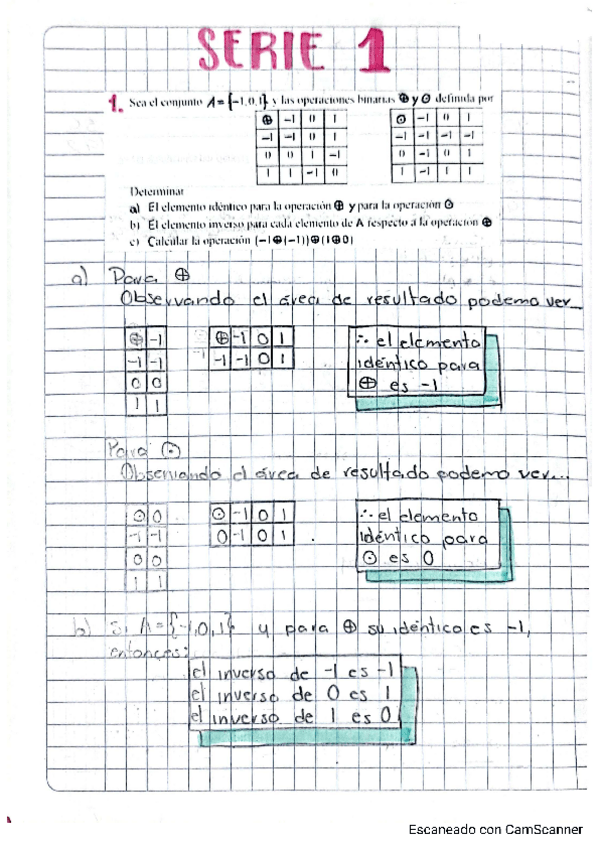 SERIE 1
1. Sea el conjunto A = {-1,0,1} y las operaciones binarias ⊕ y ⊙ definida por
⊕ -1 0 1
-1 -1 0 1
0 0 1 -1
1 1 -1 0
⊙ -1 0 1
-1 -1 -1 -1
0 -1 0 1
1 -1 1 1
Determinar
a) El elemento idéntico para la operación ⊕ y para la operación ⊙
b) El elemento inverso para cada elemento de A respecto a la operación ⊕
c) Calcular la operación (-1⊕(-1))⊕(1⊕0)
a) Para ⊕
Observando el área de resultado podemo ver...
⊕ -1
-1 -1
0 0
1 1
⊕ -1 0 1
-1 -1 0 1
∴ el elemento
idéntico para
⊕ es -1
Para ⊙
Observando el área de resultado podemo ver...
⊙ 0
-1 -1
0 0
1 1
⊙ -1 0 1
0 -1 0 1
∴ el elemento
idéntico para
⊙ es 0
b) Si A = {-1,0,1} y para ⊕ su idéntico es -1,
entonces:
el inverso de -1 es -1
el inverso de 0 es 1
el inverso de 1 es 0
Escaneado con CamScanner